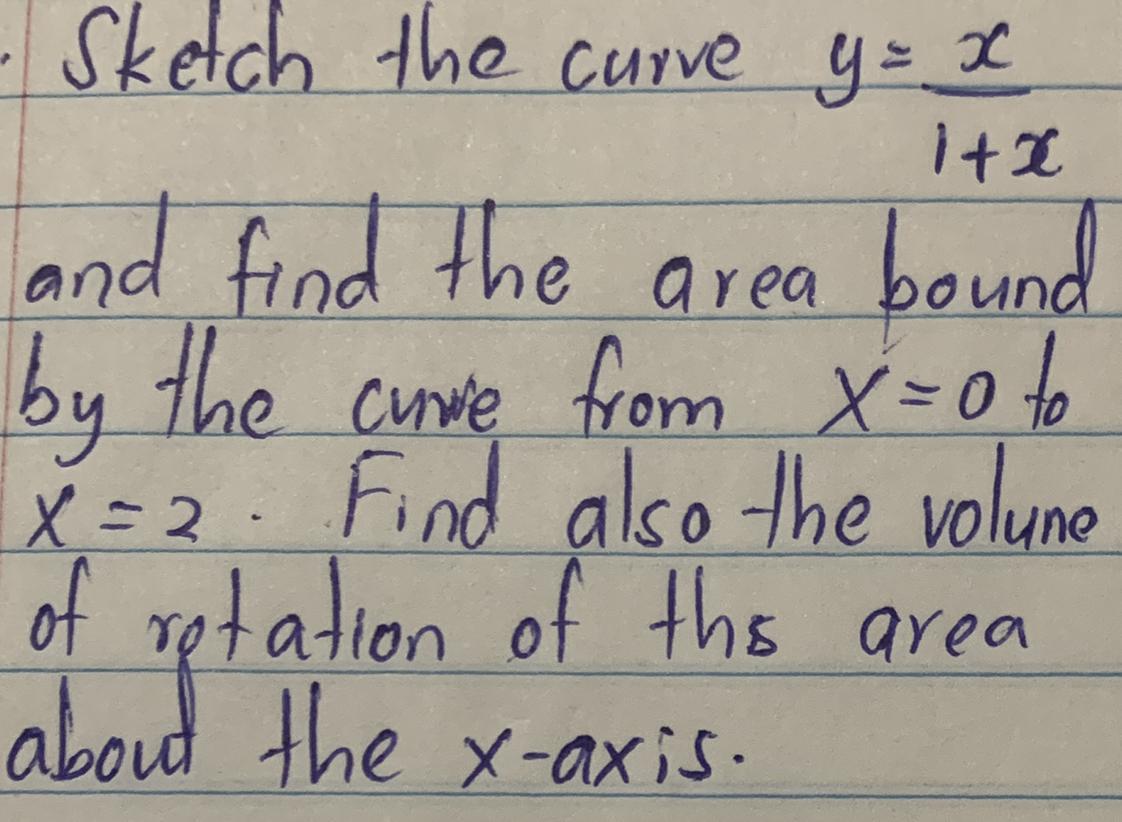 . Sketch the curve y = x/(1+x)
and find the area bound
by the curve from x = 0 to
x = 2 . Find also the volune
of rotation of ths area
about the x-axis.